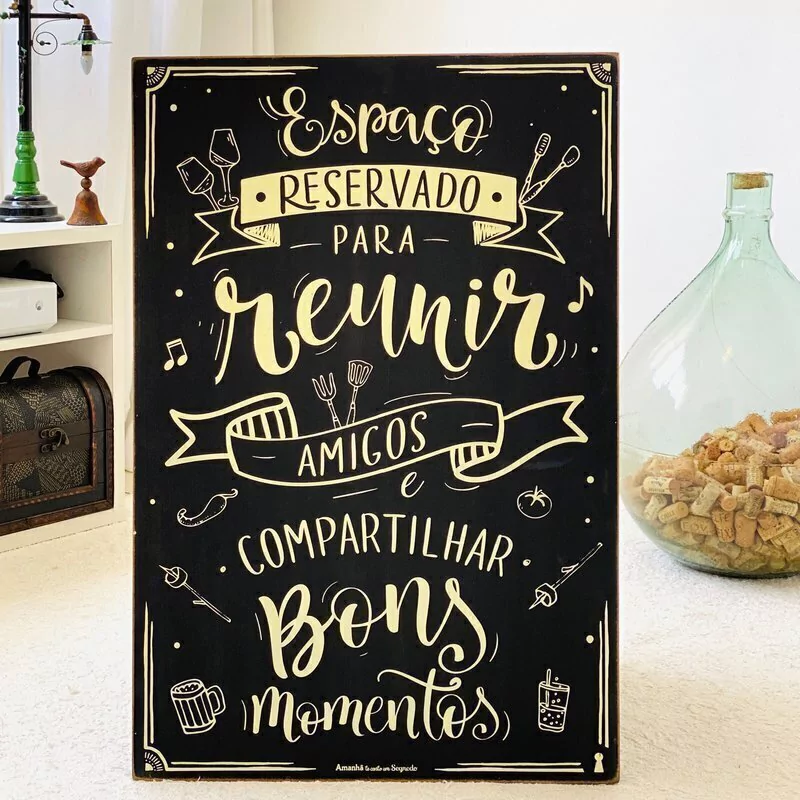 Espaço
RESERVADO
PARA
reunir
AMIGOS
e
COMPARTILHAR
Bons
momentos
Amanhã te conto um Segredo